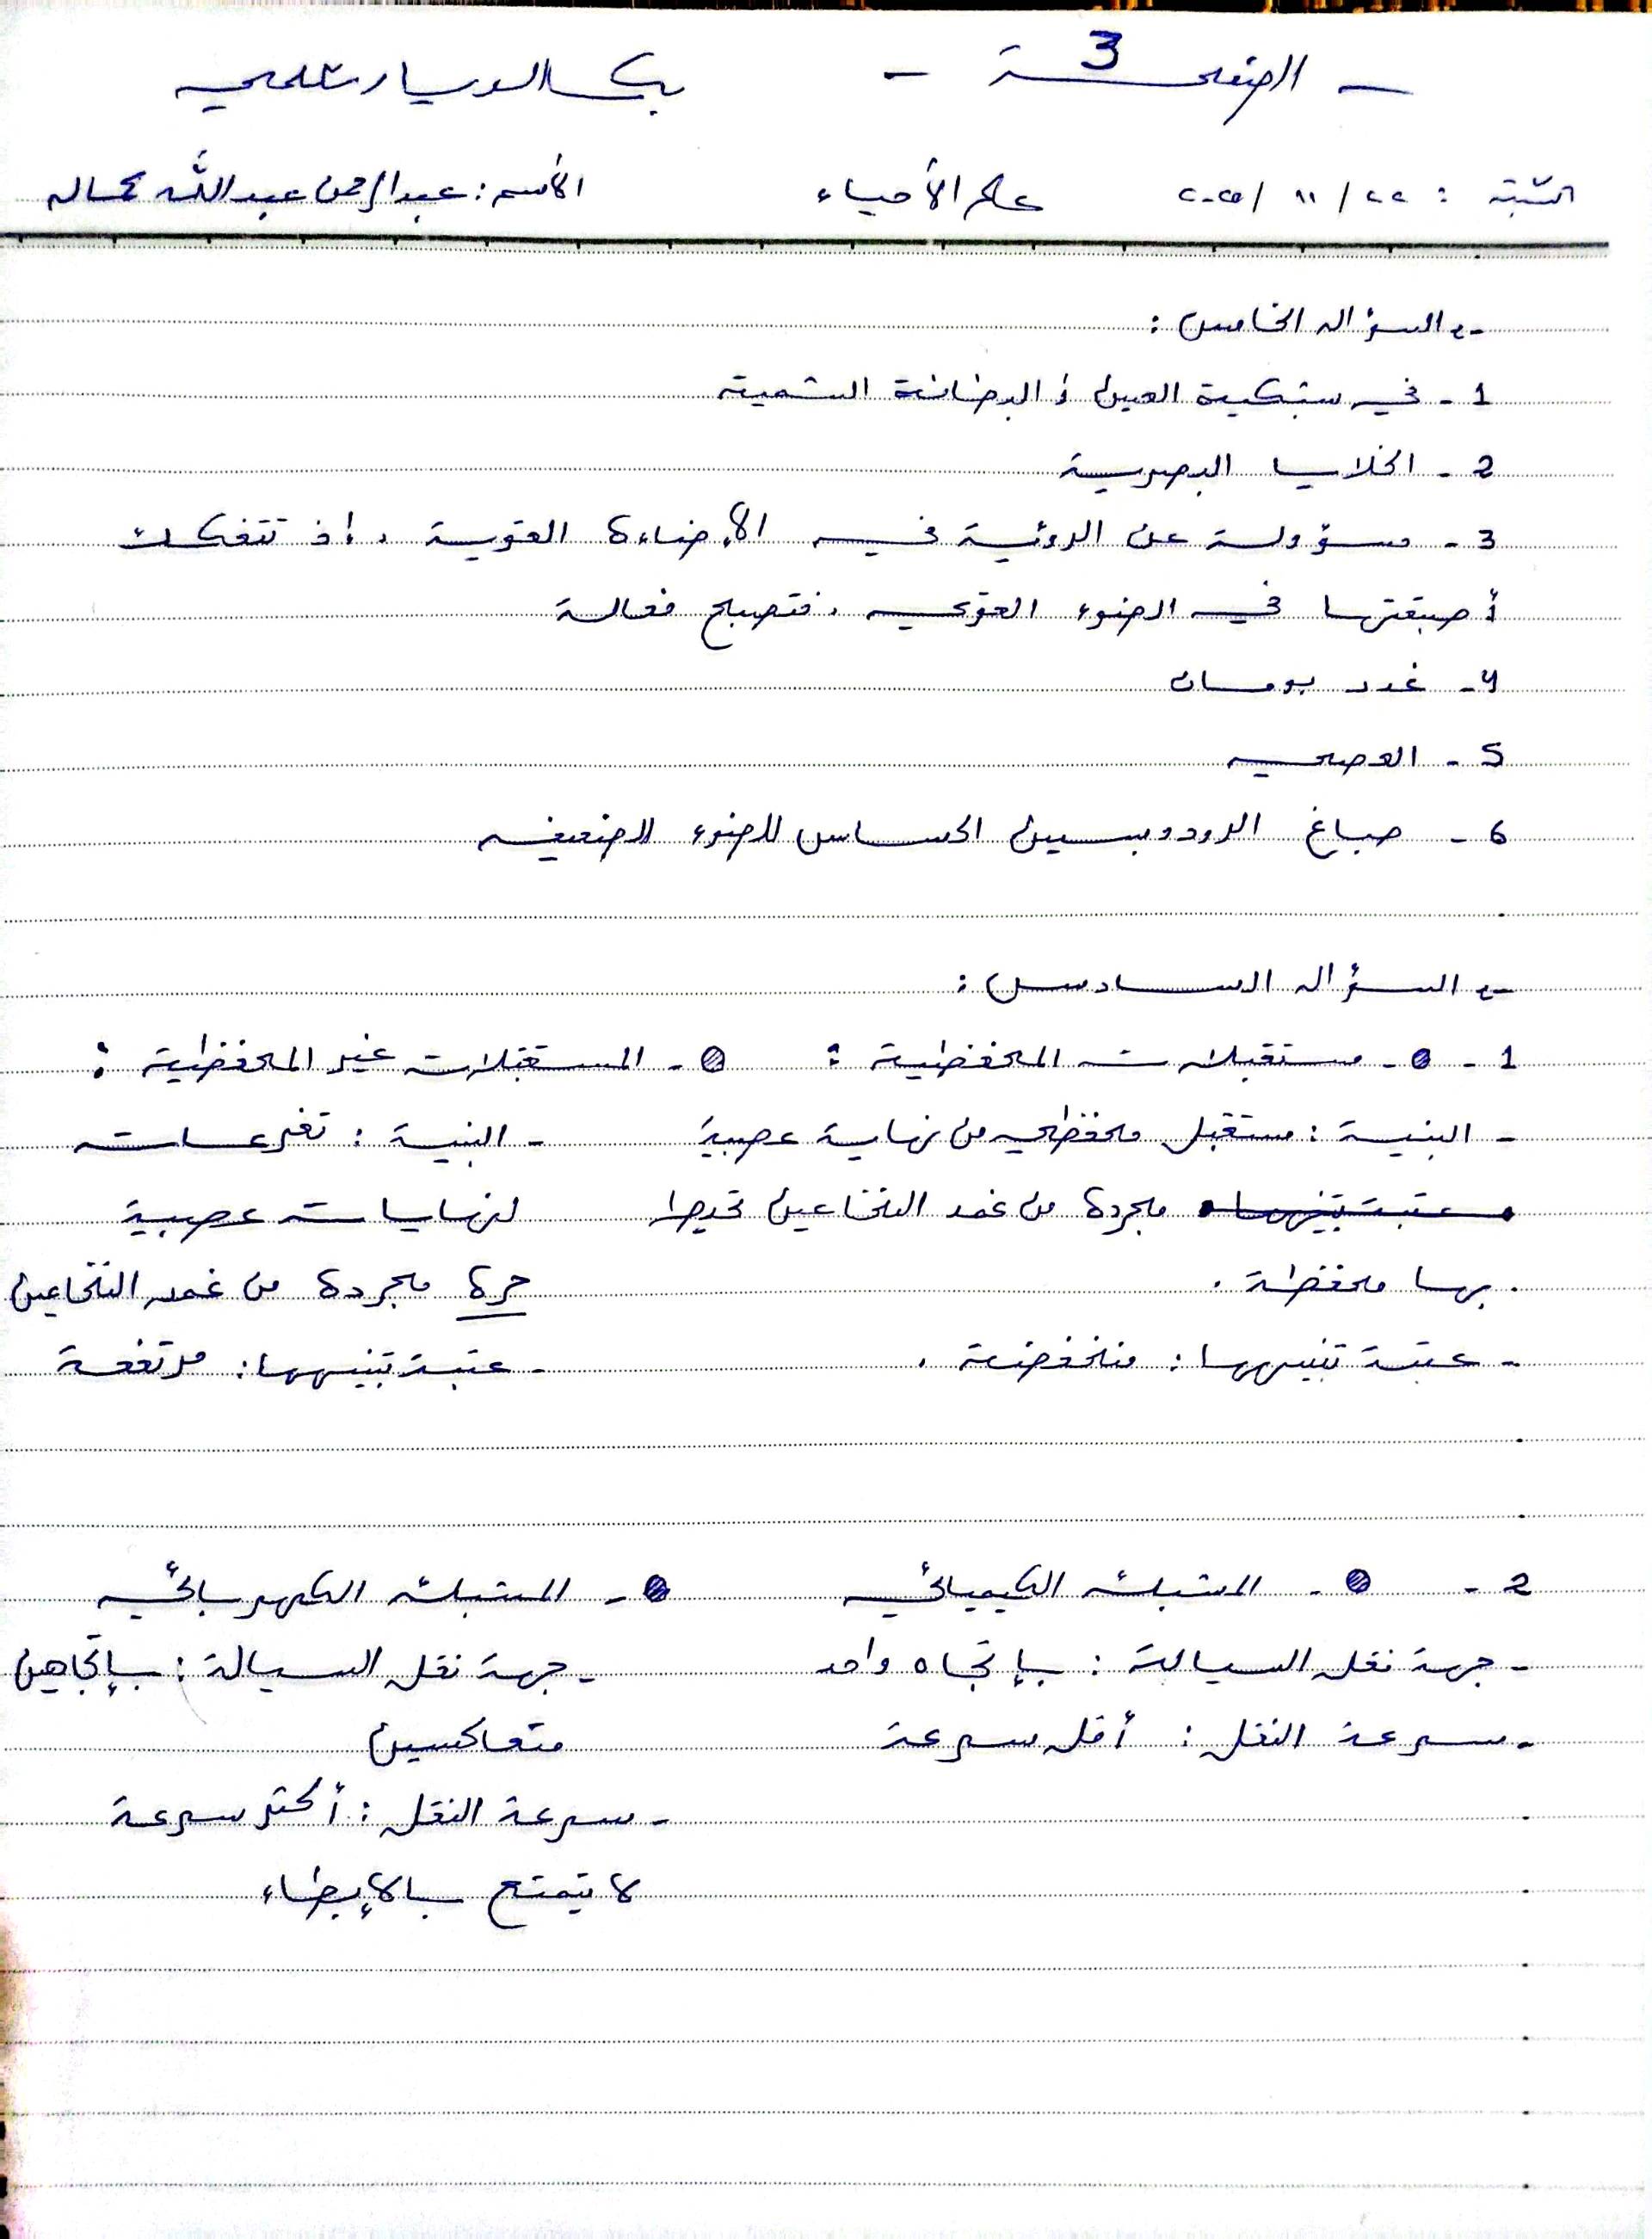 - الصفحة 3 - بكالوريا علمي
السبت : ٢٢ / ١١ / ٢٠٢٥ علم الأحياء الاسم : عبدالرحمن عبدالله
- السؤال الخامس :
1 - في شبكية العين / البطانة الشمية
2 - الخلايا البصرية
3 - مسؤولة عن الرؤية في الإضاءة القوية . إذ تتفكك
أصبغتها في الضوء القوي . فتصبح فعالة
4 - غدد بومان
5 - العصي
6 - صباغ الرودوبسين الحساس للضوء الضعيف
- السؤال السادس :
1 - - مستقبلات المحفظية : - المستقبلات غير المحفظية :
- البنية : مستقبل محفظي من نهاية عصبية - البنية : تفرعات
عتبة تنبيهها مجردة من غمد النخاعين تحيط لنهايات عصبية
بها محفظة . حرة مجردة من غمد النخاعين
- عتبة تنبيهها : منخفضة . - عتبة تنبيهها : مرتفعة
2 - - المشبك الكيميائي - المشبك الكهربائي
- جهة نقل السيالة : بإتجاه واحد - جهة نقل السيالة : بإتجاهين
- سرعة النقل : أقل سرعة متعاكسين
- سرعة النقل : أكثر سرعة
لا يتمتع بالإبطاء